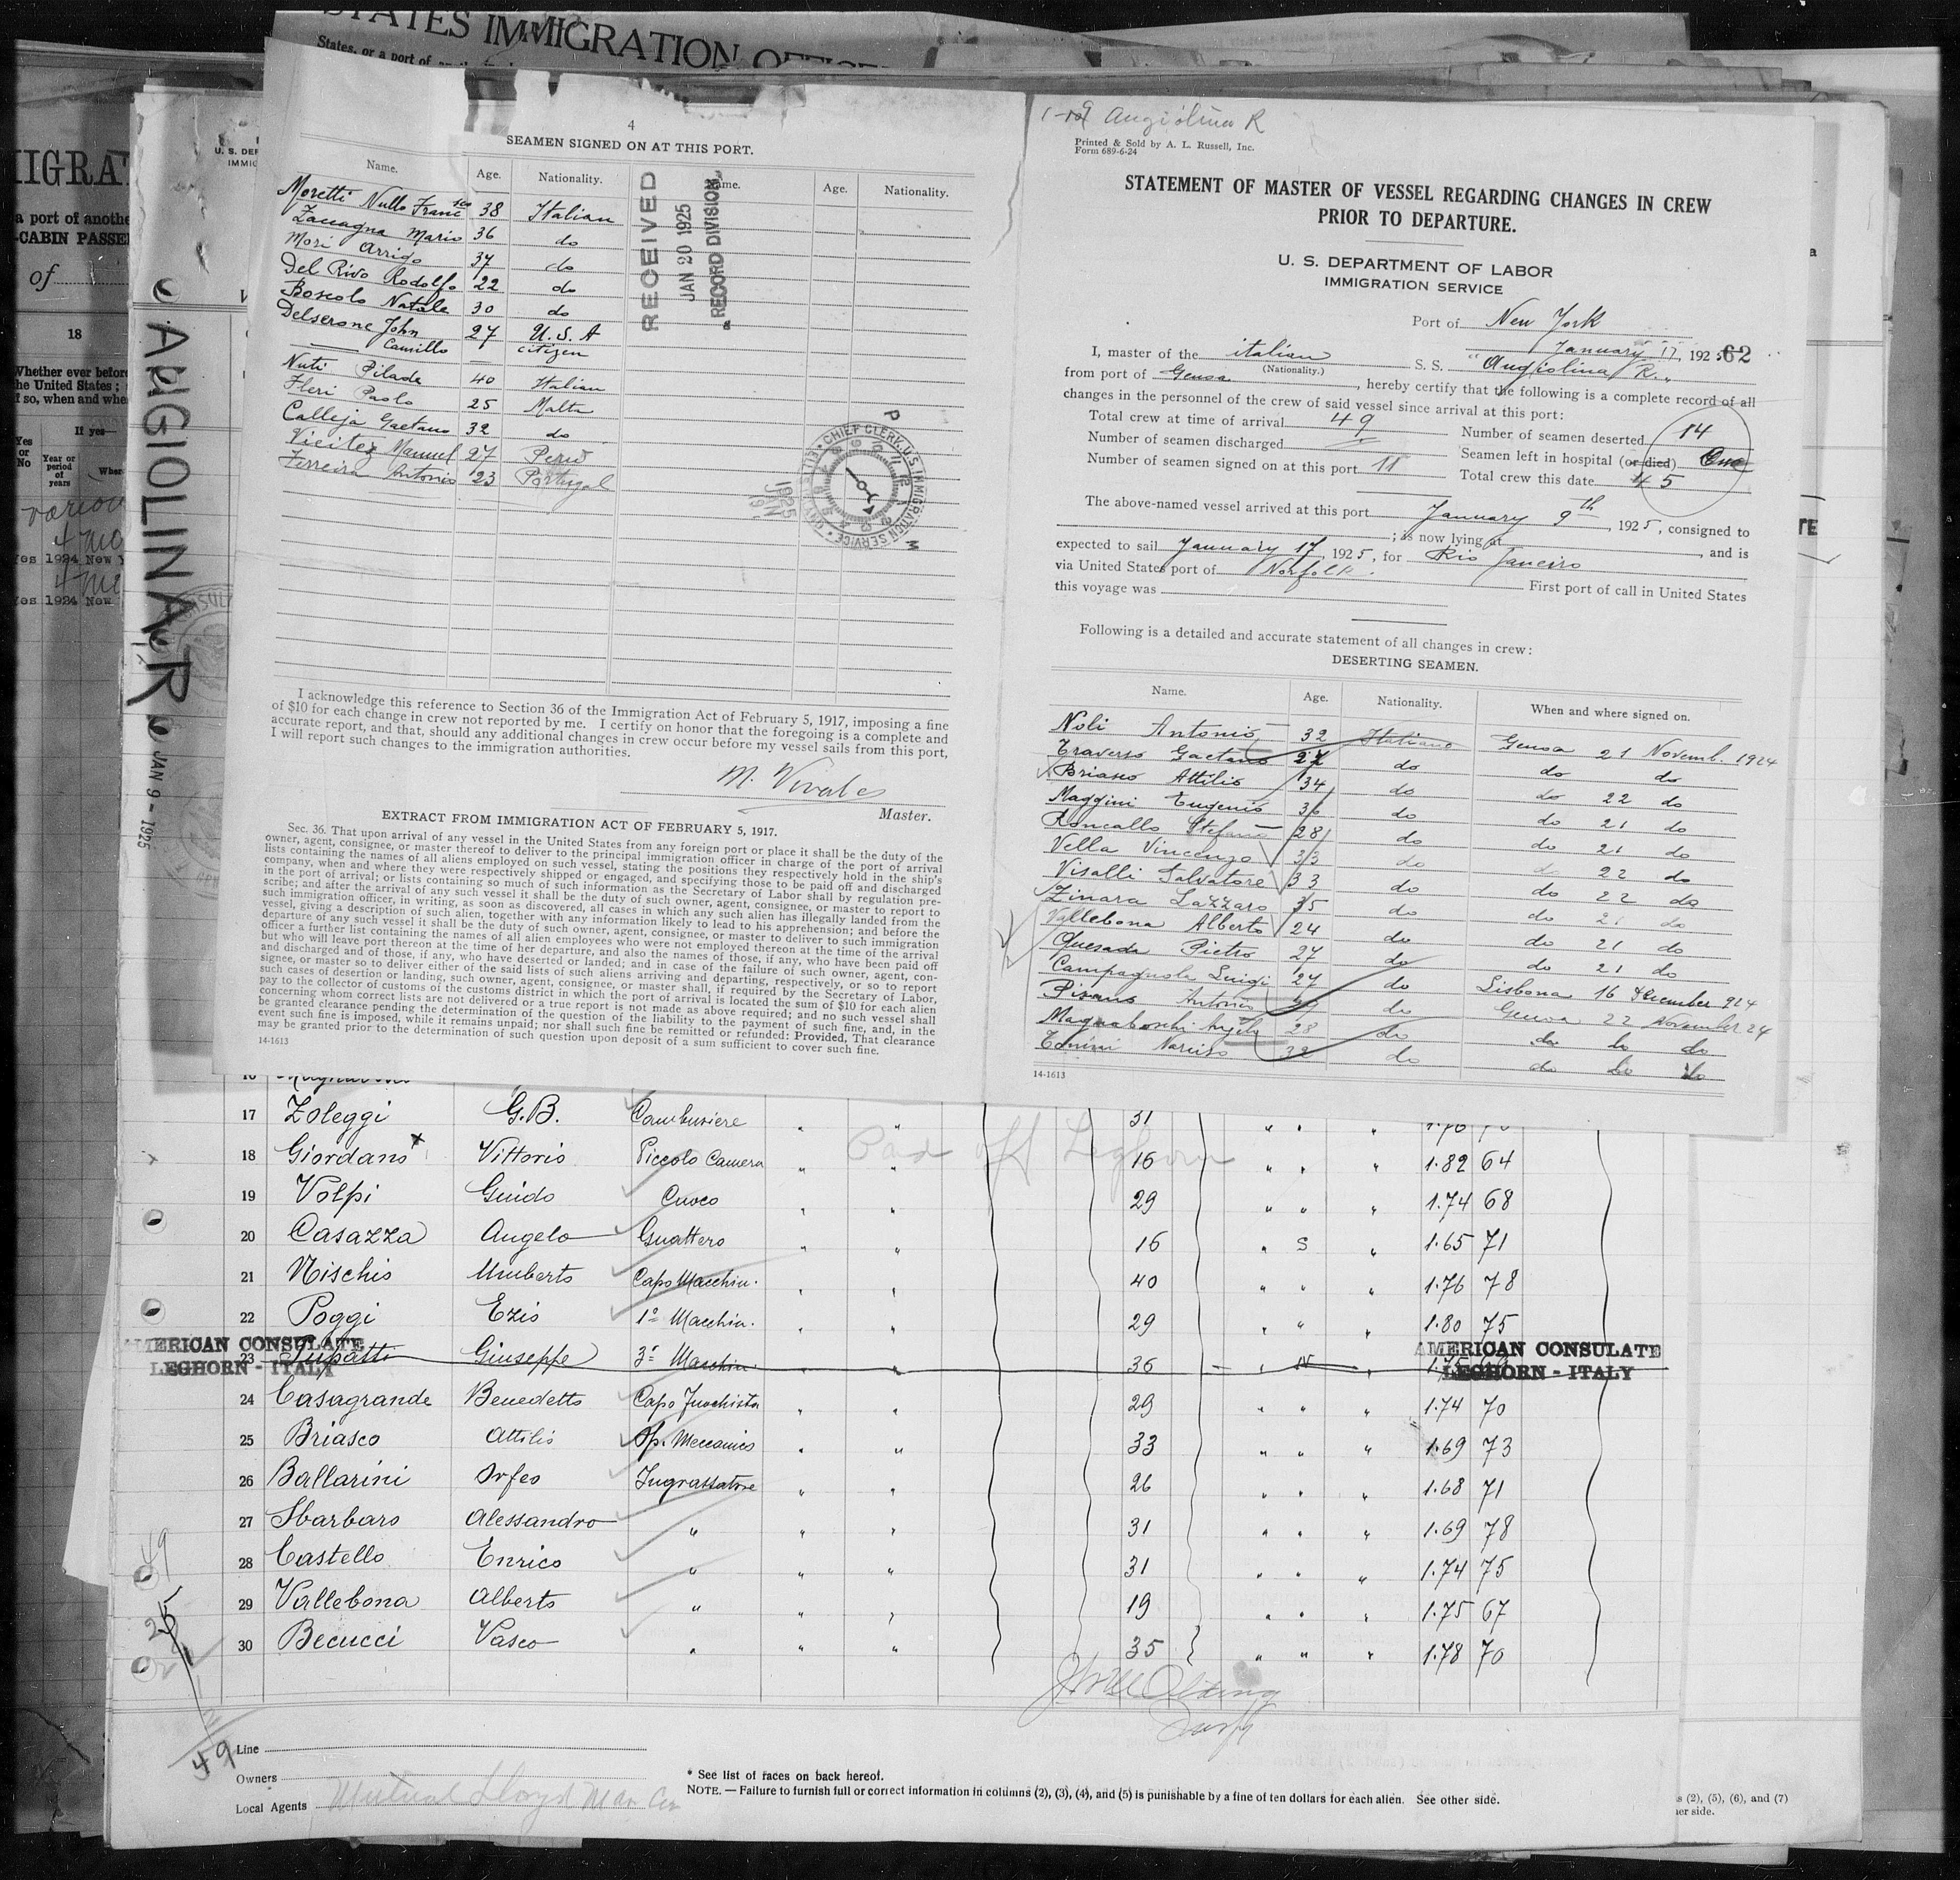 STATES IMMIGRATION OFFICE
States, or a port of
4
SEAMEN SIGNED ON AT THIS PORT.
Name. Age. Nationality. Name. Age. Nationality.
Moretti Nullo Francsco 38 Italian
Zaccagna Mario 36 do
Mori Arrigo 37 do
Del Rivo Rodolfo 22 do
Boscolo Natale 30 do
Delserone John 27 U.S.A
Camillo citizen
Nuti Pilade 40 Italian
Fleri Paolo 25 Malta
Calleja Gaetano 32 do
Vieitez Manuel 27 Peru
Ferreira Antonio 23 Portugal
RECEIVED
JAN 20 1925
RECORD DIVISION
CHIEF CLERK, U.S. IMMIGRATION SERVICE
1925
JAN
I acknowledge this reference to Section 36 of the Immigration Act of February 5, 1917, imposing a fine
of $10 for each change in crew not reported by me. I certify on honor that the foregoing is a complete and
accurate report, and that, should any additional changes in crew occur before my vessel sails from this port,
I will report such changes to the immigration authorities.
Master.
EXTRACT FROM IMMIGRATION ACT OF FEBRUARY 5, 1917.
Sec. 36. That upon arrival of any vessel in the United States from any foreign port or place it shall be the duty of the
owner, agent, consignee, or master thereof to deliver to the principal immigration officer in charge of the port of arrival
lists containing the names of all aliens employed on such vessel, stating the positions they respectively hold in the ship's
company, when and where they were respectively shipped or engaged, and specifying those to be paid off and discharged
in the port of arrival; or lists containing so much of such information as the Secretary of Labor shall by regulation pre-
scribe; and after the arrival of any such vessel it shall be the duty of such owner, agent, consignee, or master to report to
such immigration officer, in writing, as soon as discovered, all cases in which any such alien has illegally landed from the
vessel, giving a description of such alien, together with any information likely to lead to his apprehension; and before the
departure of any such vessel it shall be the duty of such owner, agent, consignee, or master to deliver to such immigration
officer a further list containing the names of all alien employees who were not employed thereon at the time of the arrival
but who will leave port thereon at the time of her departure, and also the names of those, if any, who have been paid off
and discharged and of those, if any, who have deserted or landed; and in case of the failure of such owner, agent, con-
signee, or master so to deliver either of the said lists of such aliens arriving and departing, respectively, or so to report
such cases of desertion or landing, such owner, agent, consignee, or master shall, if required by the Secretary of Labor,
pay to the collector of customs of the customs district in which the port of arrival is located the sum of $10 for each alien
concerning whom correct lists are not delivered or a true report is not made as above required; and no such vessel shall
be granted clearance pending the determination of the question of the liability to the payment of such fine, and, in the
event such fine is imposed, while it remains unpaid; nor shall such fine be remitted or refunded: Provided, That clearance
may be granted prior to the determination of such question upon deposit of a sum sufficient to cover such fine.
14-1613
Angiolina R
Printed & Sold by A. L. Russell, Inc.
Form 689-6-24
STATEMENT OF MASTER OF VESSEL REGARDING CHANGES IN CREW
PRIOR TO DEPARTURE.
U. S. DEPARTMENT OF LABOR
IMMIGRATION SERVICE
Port of New York
January 17, 1925
62
I, master of the italian S. S. "Angiolina R."
(Nationality.)
from port of Genoa, hereby certify that the following is a complete record of all
changes in the personnel of the crew of said vessel since arrival at this port:
Total crew at time of arrival 49 Number of seamen deserted 14
Number of seamen discharged Seamen left in hospital (or died) One
Number of seamen signed on at this port 11 Total crew this date 45
The above-named vessel arrived at this port January 9th, 1925, consigned to
; is now lying at , and is
expected to sail January 17, 1925, for Rio Janeiro
via United States port of Norfolk. First port of call in United States
this voyage was
Following is a detailed and accurate statement of all changes in crew:
DESERTING SEAMEN.
Name. Age. Nationality. When and where signed on.
Noli Antonio 32 Italiano Genoa 21 Novemb. 1924
Traverso Gaetano 27 do do do
Briasco Attilio 34 do do 22 do
Maggini Eugenio 36 do do 21 do
Roncallo Stefano 28 do do 21 do
Vella Vincenzo 33 do do 22 do
Visalli Salvatore 33 do do 22 do
Zinara Lazzaro 35 do do 21 do
Vallebona Alberto 24 do do 21 do
Quesada Pietro 27 do do 21 do
Campagnola Luigi 27 do Lisbona 16 december 924
Pisano Antonio do Genoa 22 November 24
Magnaboschi 28 do do do do
Tonini Narciso 32 do do do do
14-1613
ANGIOLINA R
JAN 9 - 1925
MIGRAT
a port of anothe
-CABIN PASSE
of
18
Whether ever before
the United States;
if so, when and whe
Yes or No
If yes—
Year or period of years
Wher
Yes 1924 New Y
Yes 1924 New
U. S. DEP
IMMIG
17 Zoleggi G.B. Cambusiere " " 31 " " " 1.76
Paid off Leghorn
18 Giordano Vittorio Piccolo Camera " " 16 " " " 1.82 64
19 Volpi Guido Cuoco " " 29 " " " 1.74 68
20 Casazza Angelo Guattero " " 16 " S " 1.65 71
21 Nischio Umberto Capo Macchin. " " 40 " " " 1.76 78
22 Poggi Ezio 1º Macchin. " " 29 " " " 1.80 75
AMERICAN CONSULATE
LEGHORN - ITALY
23 Giuseppe 3º Macchin. " " 36 " N " 1.75
AMERICAN CONSULATE
LEGHORN - ITALY
24 Casagrande Benedetto Capo Fuochista " " 29 " " " 1.74 70
25 Briasco Attilio Op. Meccanico " " 33 " " " 1.69 73
26 Ballarini Orfeo Ingrassatore " " 26 " " " 1.68 71
27 Sbarbaro Alessandro " " " 31 " " " 1.69 78
28 Castello Enrico " " " 31 " " " 1.74 75
29 Vallebona Alberto " " " 19 " " " 1.75 67
30 Becucci Vasco " " " 35 " " " 1.78 70
49
49
Line
Owners
Local Agents
* See list of races on back hereof.
NOTE. — Failure to furnish full or correct information in columns (2), (3), (4), and (5) is punishable by a fine of ten dollars for each alien. See other side.
s (2), (5), (6), and (7)
her side.